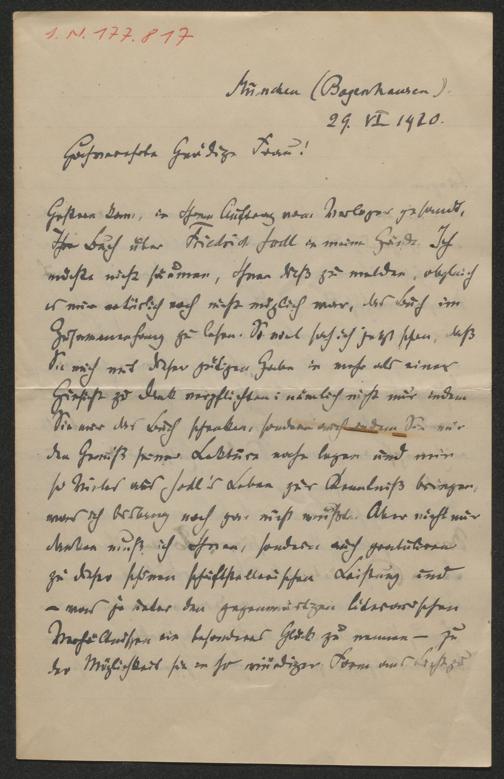 I. N. 177.817
München (Bogenhausen).
29. VI 1920.
Hochverehrte Gnädige Frau!
Gestern kam, in Ihrem Auftrag vom Verleger gesandt,
Ihr Buch über Friedrich Jodl in meine Hände. Ich
möchte nicht säumen, Ihnen dieß zu melden, obgleich
es mir natürlich noch nicht möglich war, das Buch im
Zusammenhang zu lesen. So viel sah ich jetzt schon, daß
Sie mich mit dieser gütigen Gabe in mehr als einer
Hinsicht zu Dank verpflichten: nämlich nicht nur indem
Sie mir das Buch schenken, sondern auch indem Sie mir
den Genuß seiner Lektüre nahe legen und mir
so Vieles aus Jodl's Leben zur Kenntniß bringen,
was ich bislang noch gar nicht wußte. Aber nicht nur
danken muß ich Ihnen, sondern auch gratulieren
zu dieser schönen schriftstellerischen Leistung und
– was ja unter den gegenwärtigen literarischen
Verhältnissen ein besonderes Glück zu nennen – zu
der Möglichkeit sie in so würdiger Form ans Licht zu